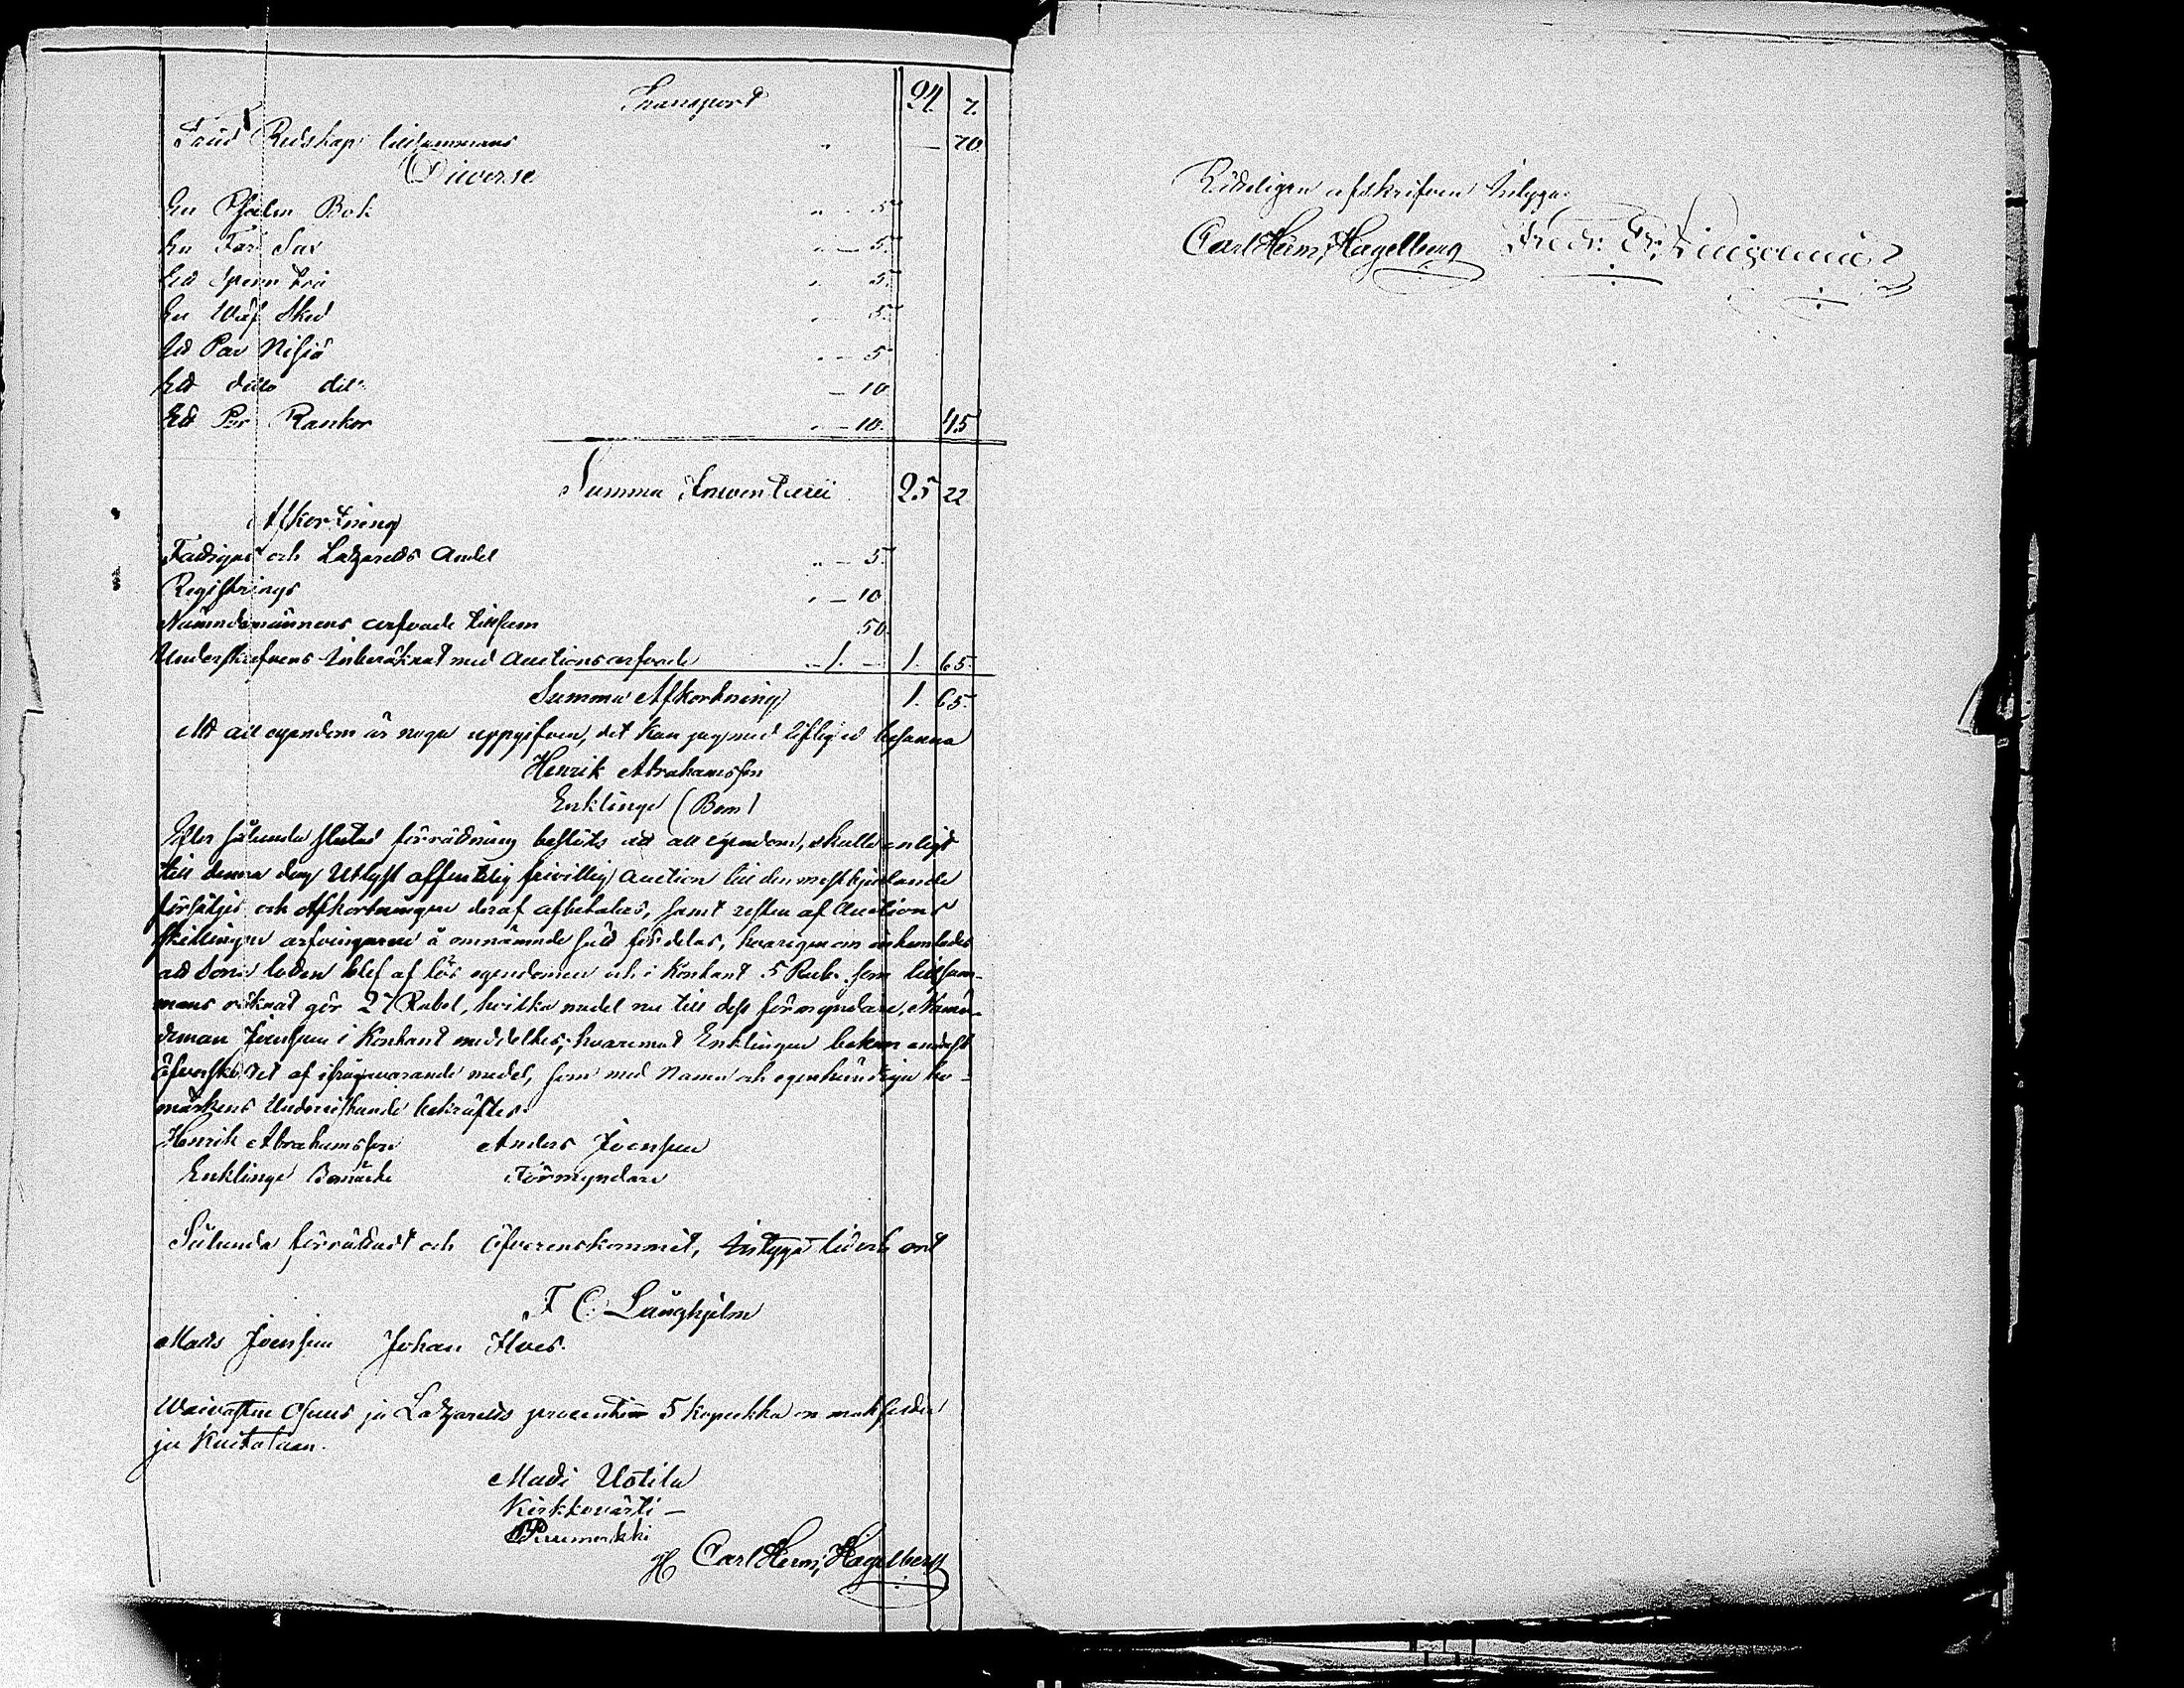 Transport 24. 7.
Träd Redskap tillsammans " — 70
Diverse
En Psalm Bok " — 5
En Får Sax " — 5.
Ett Spenn trä " 5.
En Wäf Sked " — 5
Ett Par Nisjä " — 5
Ett ditto dito — 10
Ett Par Rankor " — 10. 45
Summa Inventerii 25 22
Afkortning
Fattigas och Lazaretts Andel " — 5.
Registrings " — 10
Nämndemännens arfvode tillsam 50.
Underskrefvens inberäknat med Auctions arfvode — 1. — 1. 65.
Summa Afkortning 1. 65.
Att all egendom är noga uppgifven, det kan jag med liflig ed besanna
Henrik Abrahamsson
Enklinge (Bom)
Efter sålunda slutad förrättning beslöts att all egendom, skulle enligt
till denna dag Utlyst offentelig frivillig Auction till den mestbjudande
försäljas och Afkortningen deraf afbetalas, samt resten af Auctions
skillingen arfvingarne å omnämnde sätt fördelas, hvarigenom
att Sons lotten blef af lös egendomen och i Kontant 5 Rub. som tillsam-
mans räknat gör 27 Rubel, hvilka medel nu till dess förmyndare, Nämn-
deman Joensuu i Kontant meddeltes; hvaremot Enklingen bekom
öfverskottet af ifrågavarande medel, som med Namn och egenhändiga bo-
märkens Underritande bekräftes.
Henrik Abrahamsson Anders Joensuu
Enklinge Bomärke Förmyndare
Sålunda förrättadt och öfverenskommet, intyga tid och ort
F C. Långhjelm
Matts Joensuu Johan Ilves.
Waivasten Osuus ja Lazaretts procentin 5 kopeekka on maksettu
ja Kuitataan.
Matti Uotila
Kirkkovärti —
Puumerkki
Carl Herm; Hagelberg
Riktigen afskrifven intyga
Carl Herm; Hagelberg Fredr. Fr.